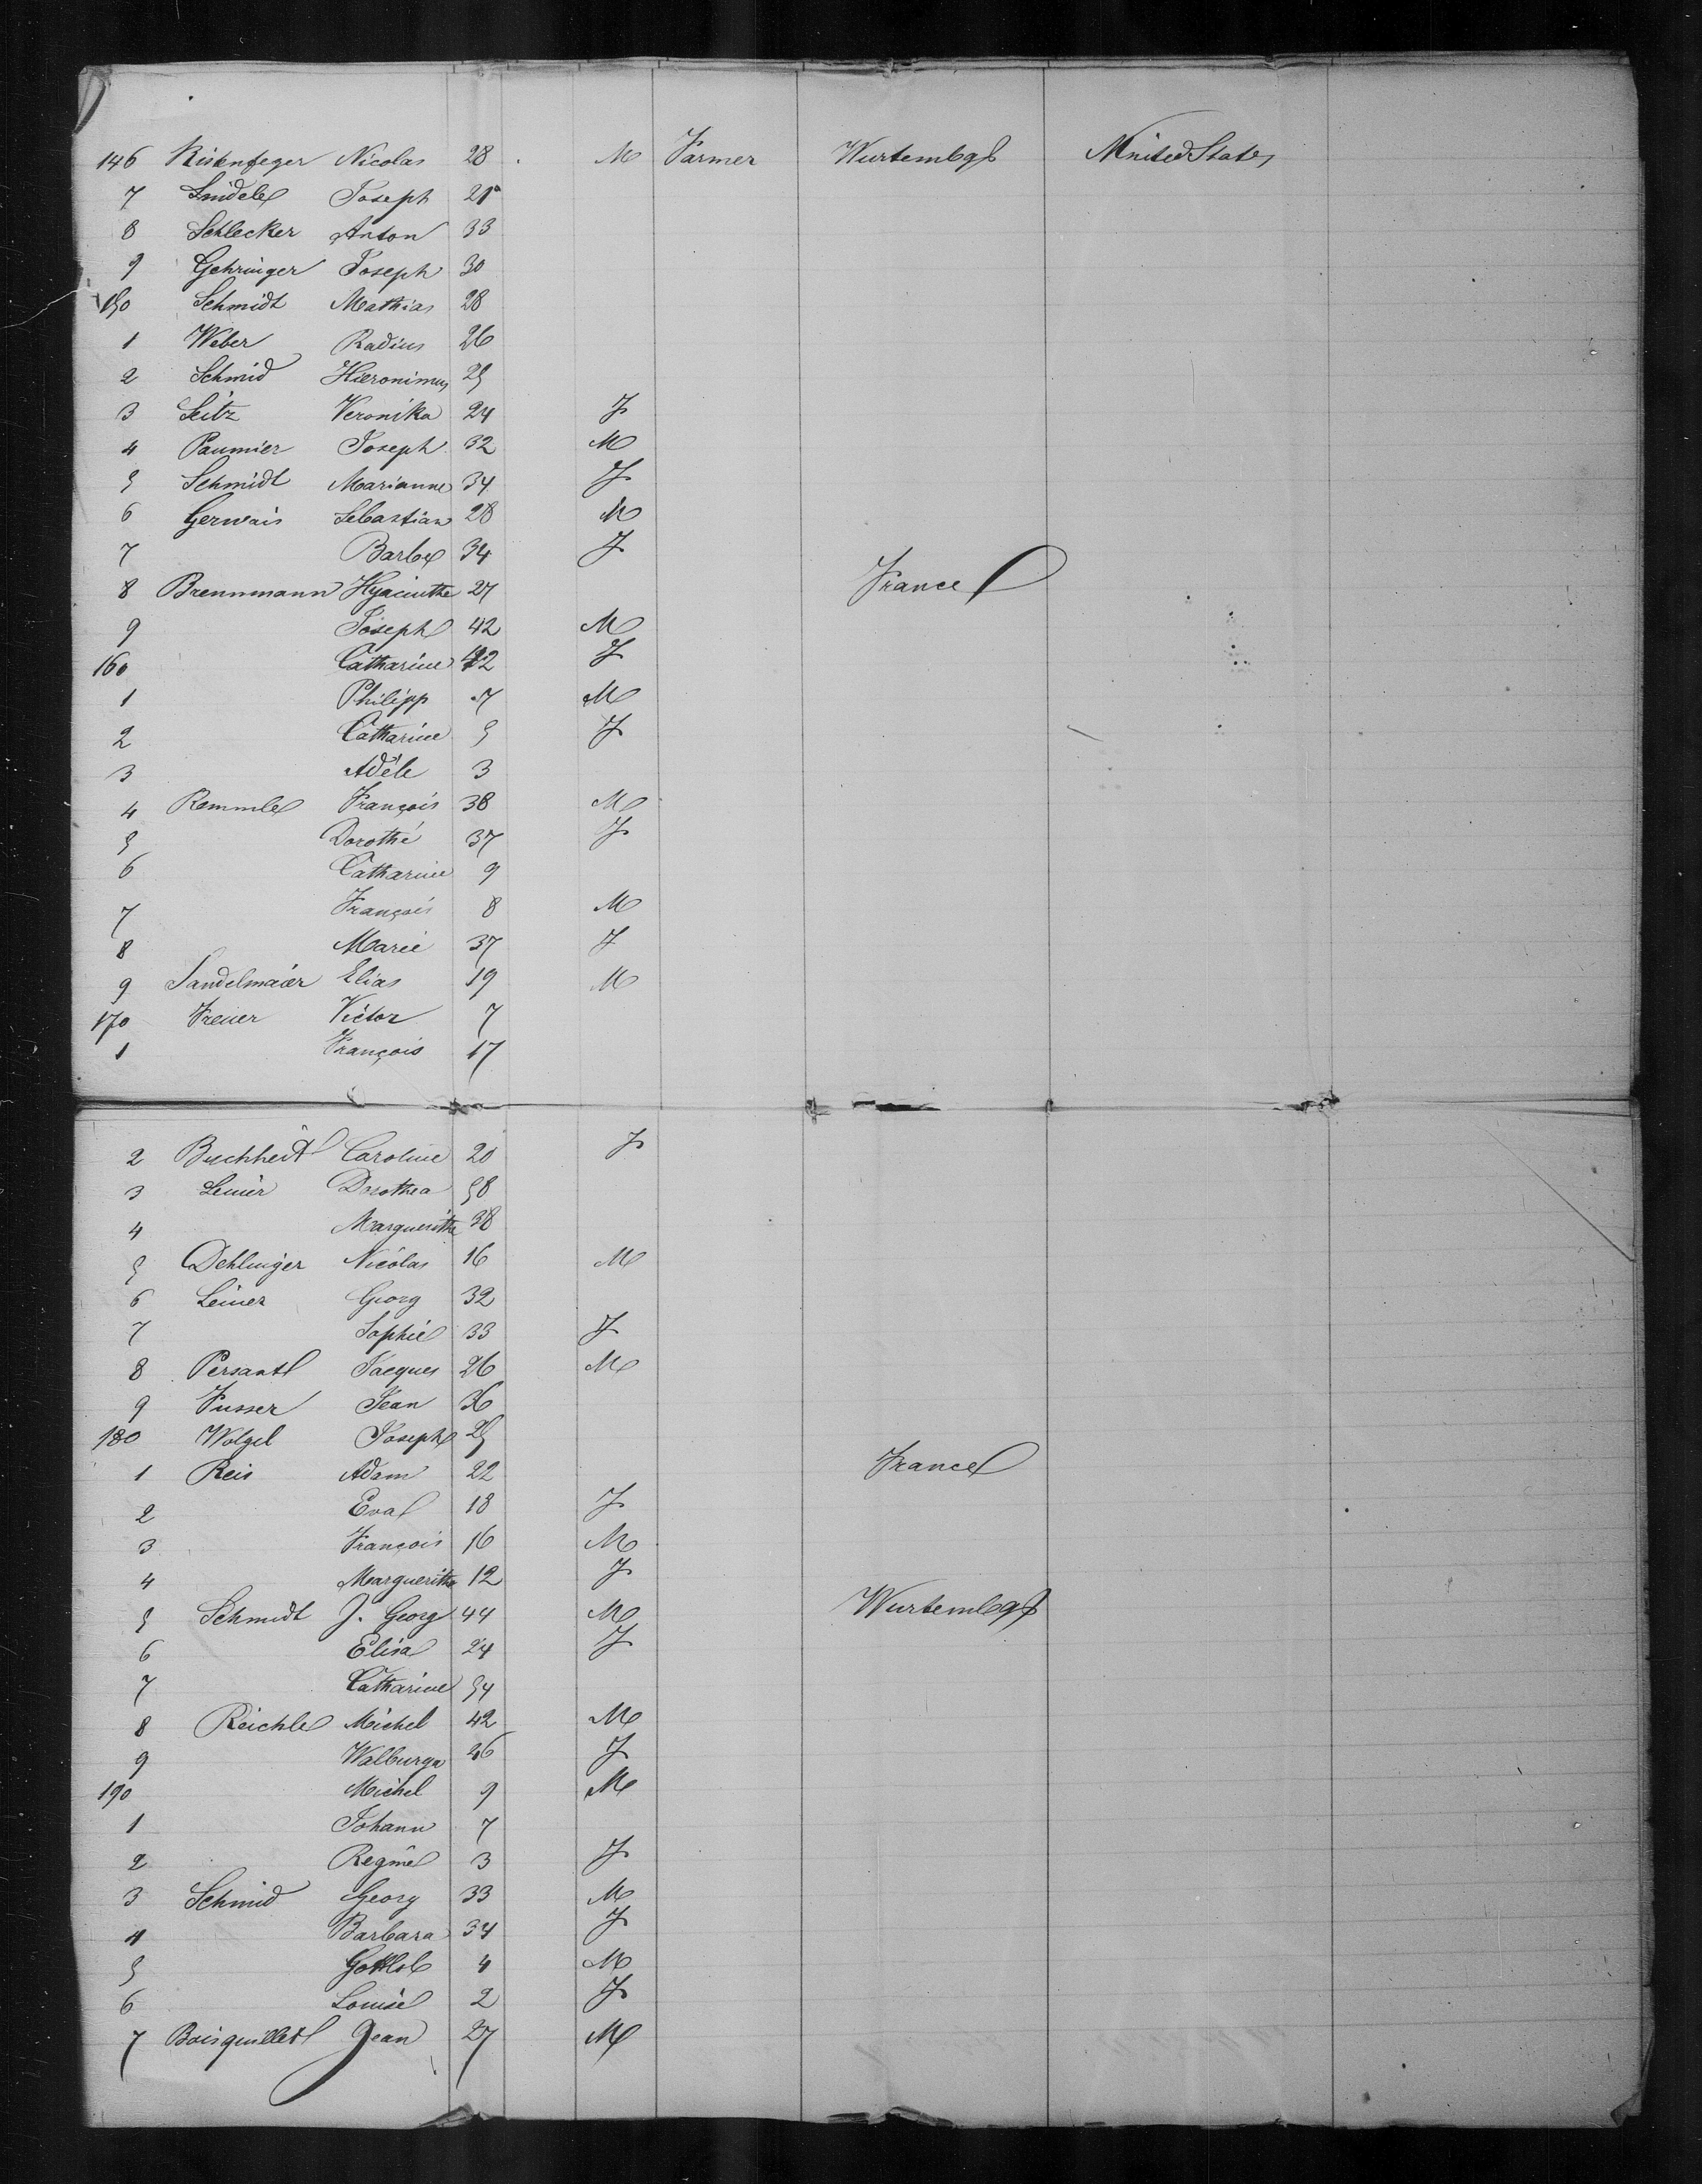 146 Nicolas 28 M Farmer Wurtembg United States
7 Joseph 21
8 Schlecker Anton 33
9 Gehringer Joseph 30
150 Schmidt Mathias 28
1 Weber Radius 26
2 Schmid Hieronimus 25
3 Seitz Veronika 24 F
4 Paumier Joseph 32 M
5 Schmidt Marianne 34 F
6 Gervais Sebastian 28 M
7 Barbe 34 F
8 Brennmann Hyacinthe 27 France
9 Joseph 42 M
160 Catharine 42 F
1 Philipp 7 M
2 Catharine 5 F
3 Adèle 3
4 Remmle François 38 M
5 Dorothé 37 F
6 Catharine 9
7 François 8 M
8 Marie 37 F
9 Sandelmaier Elias 19 M
170 Freuer Victor 7
1 François 17
2 Buchheit Caroline 20 F
3 Dorothea 58
4 Marguerithe 38
5 Dehlinger Nicolas 16 M
6 Leiner Georg 32
7 Sophie 33 F
8 Jacques 26 M
9 Fusser Jean 36
180 Wolgel Joseph 25
1 Reis Adam 22 France
2 Eva 18 F
3 François 16 M
4 Marguerithe 12 F
5 Schmidt J. Georg 44 M Wurtembg
6 Elisa 24 F
7 Catharine 54
8 Reichle Michel 42 M
9 Walburga 46 F
190 Michel 9 M
1 Johann 7
2 Regine 3 F
3 Schmid Georg 33 M
4 Barbara 34 F
5 Gottlob 4 M
6 Louise 2 F
7 Boisquillet Jean 27 M